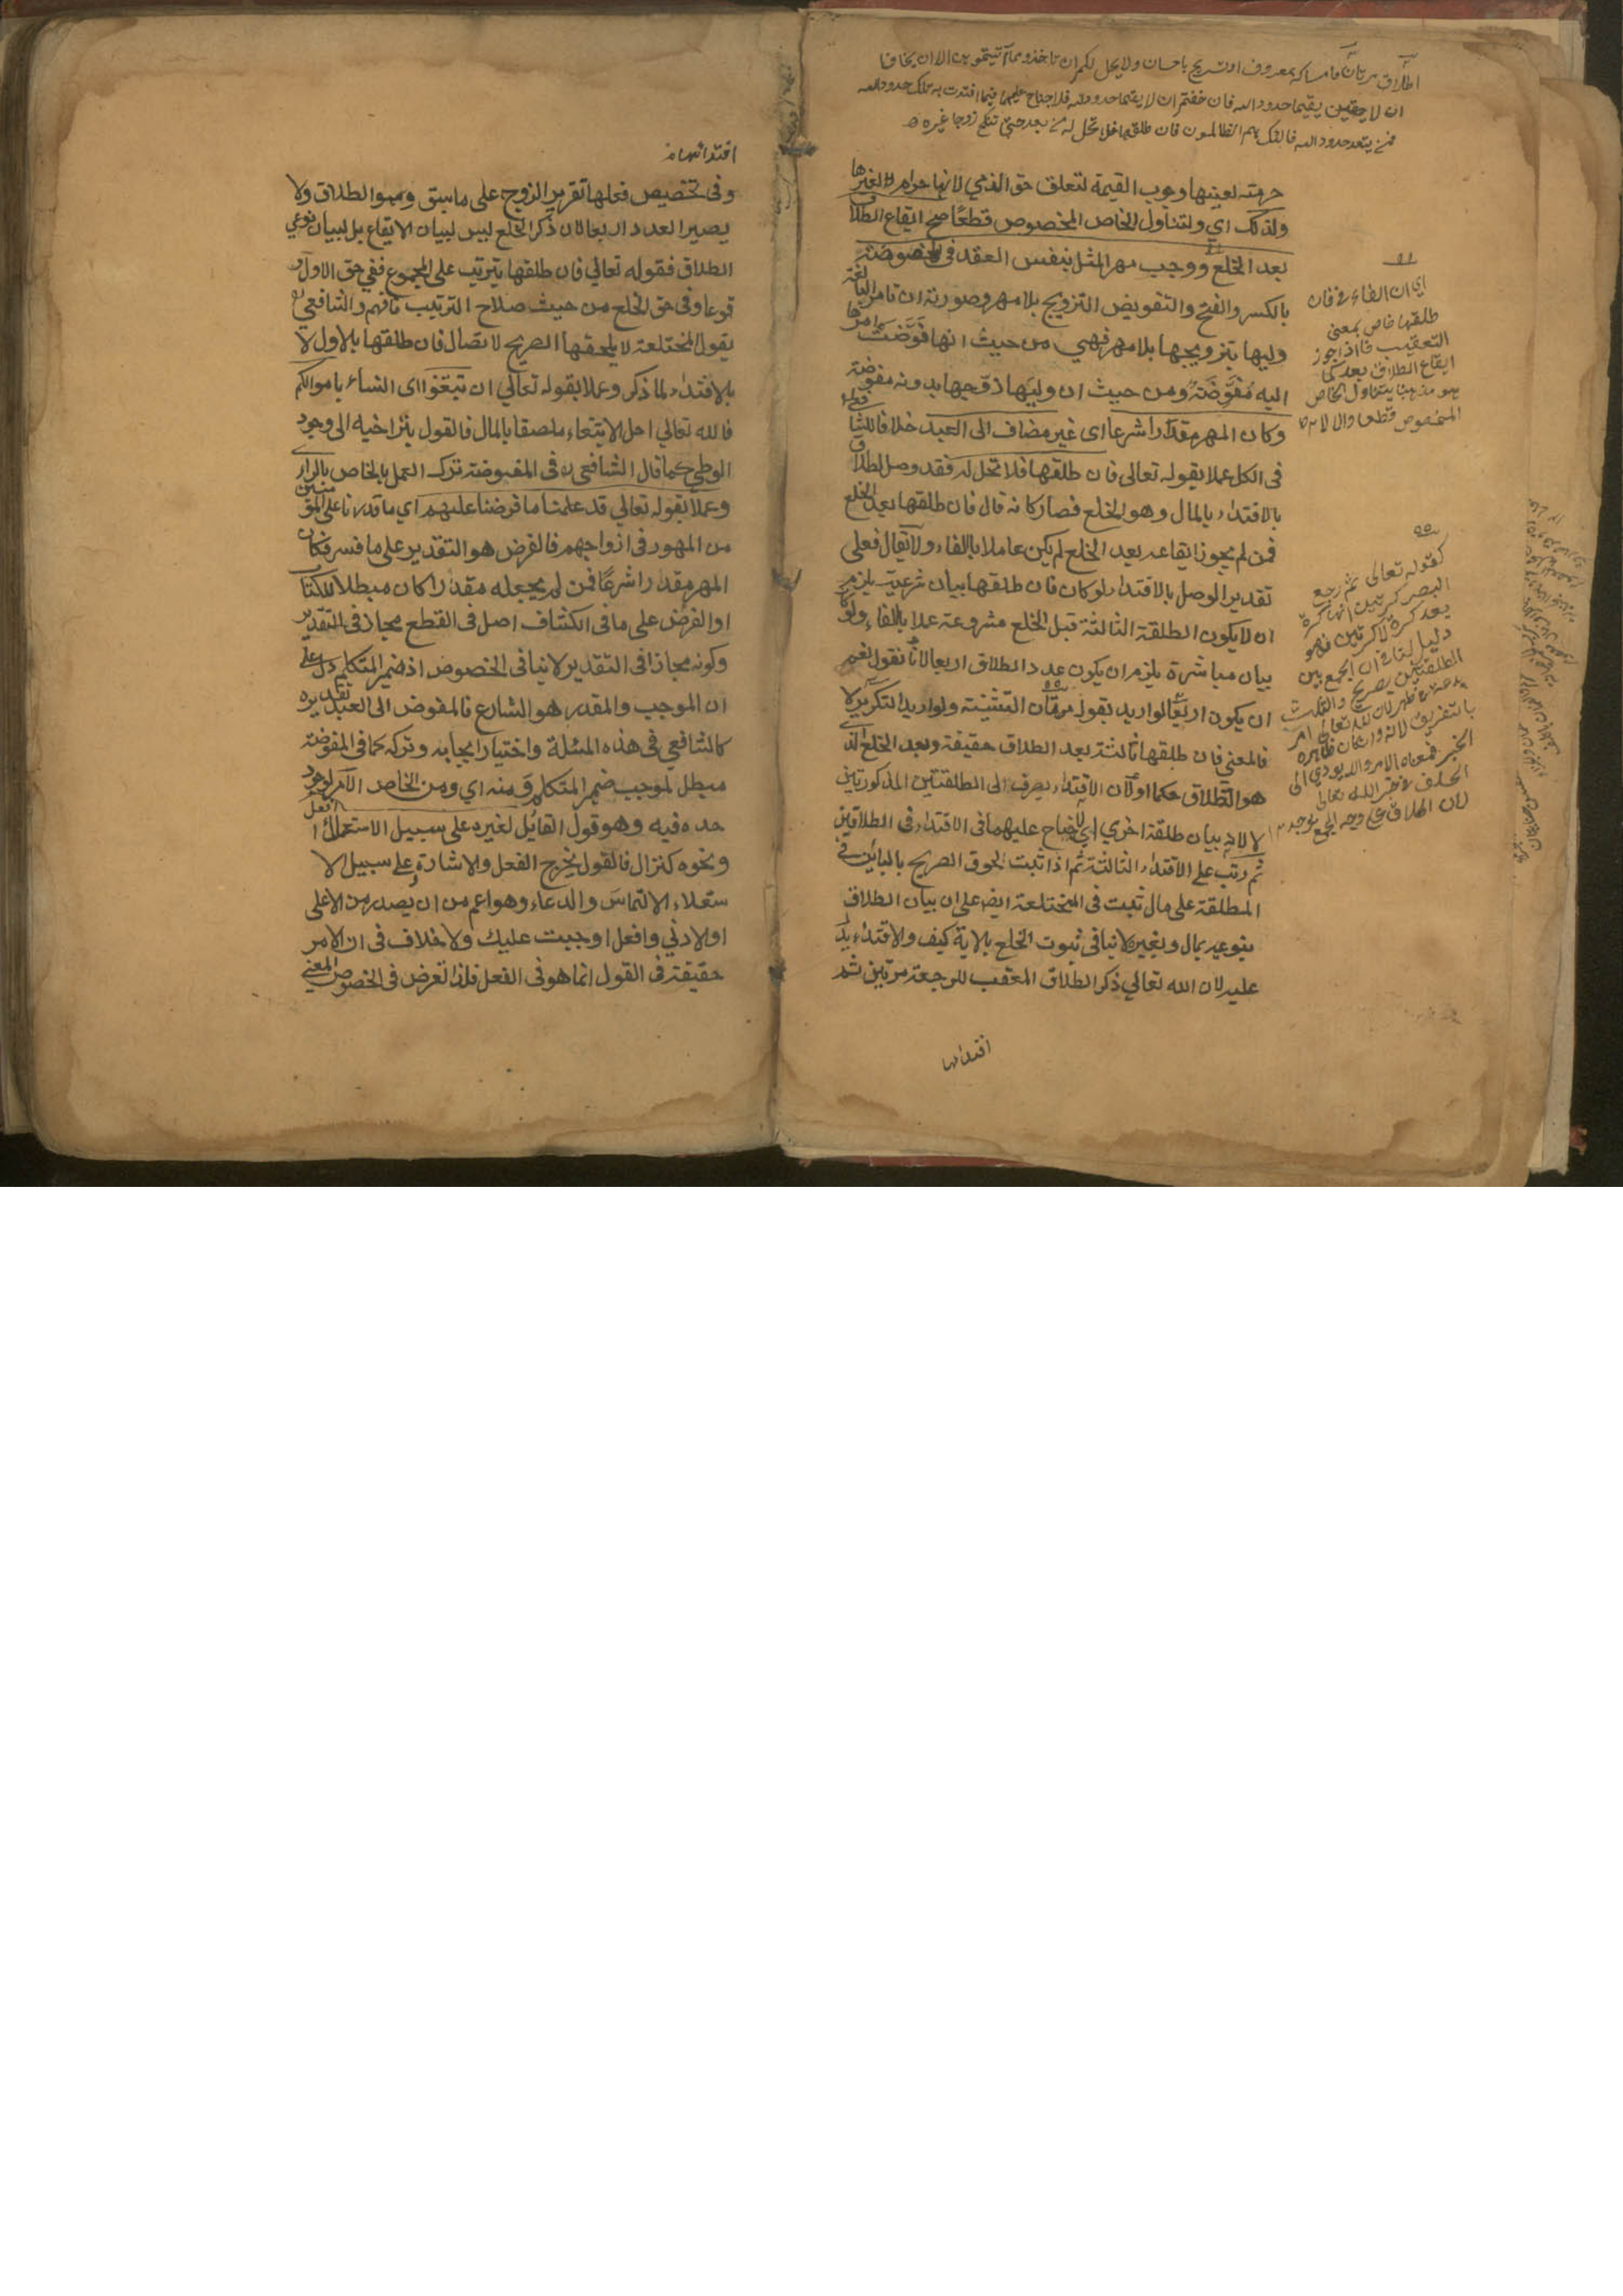 الطلاق مرتان فامساك بمعروف او تسريح باحسان ولا يحل لكم ان تاخذوا مما آتيتموهن الا ان يخافا
ان لا يقيما حدود الله فان خفتم ان لا يقيما حدود الله فلا جناح عليهما فيما افتدت به تلك حدود الله
فمن يتعد حدود الله فاولئك هم الظالمون فان طلقها فلا تحل له من بعد حتى تنكح زوجا غيره
حرمته لعينها وجوب القيمة لتعلق حق الذمي لانها حرام لغيرها
ولذلك اي ولتناول الخاص المخصوص قطعًا صح ايقاع الطلاق
بعد الخلع ووجب مهر المثل بنفس العقد في المفوضة
بالكسر والفتح والتفويض التزويج بلا مهر وصورته ان تامر البالغة
وليها بتزويجها بلا مهر فهي من حيث انها فوّضت امرها
اليه مُفَوِّضَة ومن حيث ان وليّها زوّجها بدونه مفوضة
وكان المهر مقدرا شرعا اى غير مضاف الى العبد خلافا للشافعي
فى الكل عملا بقوله تعالى فان طلقها فلا تحل له فقد وصل الطلاق
بالافتداء بالمال وهو الخلع فصار كانه قال فان طلقها بعد الخلع
فمن لم يجوز ايقاعه بعد الخلع لم يكن عاملا بالفاء ولا يقال فعلى
تقدير الوصل بالافتداء لو كان فان طلقها بيان شرعية يلزم
ان لا يكون الطلقة الثالثة قبل الخلع مشروعة عملا بالفاء ولو كان
بيان مباشرة يلزم ان يكون عدد الطلاق اربعا لانا نقول نعم
ان يكون اربعا لو اريد بقوله مرتان التثنية ولو اريد التكرير لا
فالمعنى فان طلقها ثالثة بعد الطلاق حقيقة وبعد الخلع الذي
هو الطلاق حكما او لان الافتداء يصرف الى الطلقتين المذكورتين
لا لانه بيان طلقة اخرى اي لا جناح عليهما فى الافتداء فى الطلاقين
ثم رتب على الافتداء الثالثة ثم اذا ثبت لحوق الصريح بالبائن في
المطلقة على مال ثبت فى المختلعة ايضا على ان بيان الطلاق
بنوعيه بمال وبغيره لا ينافى ثبوت الخلع بالآية كيف والافتداء يدل
عليه لان الله تعالى ذكر الطلاق المعقب للرجعة مرتين ثم
افتدائها
اي ان الفاء في فان
طلقها خاص بمعنى
التعقيب فاذا جوز
ايقاع الطلاق بعد كما
هو مذهبنا يتناول الخاص
المخصوص قطعا والا لا
كقوله تعالى ثم ارجع
البصر كرتين اي كرة
بعد كرة لا كرتين فهو
دليل لنا في ان الجمع بين
الطلقتين
لان الله تعالى امر
بالتفريق لانه وان كان ظاهره
الخبر فمعناه الامر والا يؤدي الى
الخلف في خبر الله تعالى
لان الطلاق على وجه الجمع يوجد
افتدائها
وفى تخصيص فعلها تقرير الزوج على ما سبق وهو الطلاق ولا
يصير العدد اربعا لان ذكر الخلع ليس لبيان الايقاع بل لبيان نوعي
الطلاق فقوله تعالى فان طلقها يترتب على المجموع ففي حق الاول
قوعا وفى حق الخلع من حيث صلاح الترتيب فافهم والشافعي
يقول المختلعة لا يلحقها الصريح لاتصال فان طلقها بالاول لا
بالافتداء لما ذكر وعملا بقوله تعالى ان تبتغوا اى النساء باموالكم
فالله تعالى احل الابتغاء ملصقا بالمال فالقول بتراخيه الى وجود
الوطي كما قال الشافعي في المفوضة ترك العمل بالخاص بالراى
وعملا بقوله تعالي قد علمنا ما فرضنا عليهم اي ما قدرنا على المؤمنين
من المهور فى ازواجهم فالفرض هو التقدير على ما فسر فكان
المهر مقدرا شرعًا فمن لم يجعله مقدرا كان مبطلا للكتاب
او الفرض على ما فى الكشاف اصل فى القطع مجاز فى التقدير
وكونه مجازا فى التقدير لا ينافى الخصوص اذ ضمير المتكلم دل على
ان الموجب والمقدر هو الشارع فالمفوض الى العبد تقديره
كالشافعي في هذه المسئلة واختيار ايجابه وتركه كما فى المفوضة
مبطل لموجب ضمير المتكلم ومنه اي ومن الخاص الامر لوجود
حده فيه وهو قول القائل لغيره على سبيل الاستعلاء افعل
ونحوه كنزال فالقول يخرج الفعل والاشارة وعلى سبيل الا
ستعلاء الالتماس والدعاء وهو اعم من ان يصدر من الاعلى
او الادني وافعل اوجبت عليك ولا خلاف فى ان الامر
حقيقة فى القول انما هو فى الفعل فلذا تعرض فى الخصوص المعنى